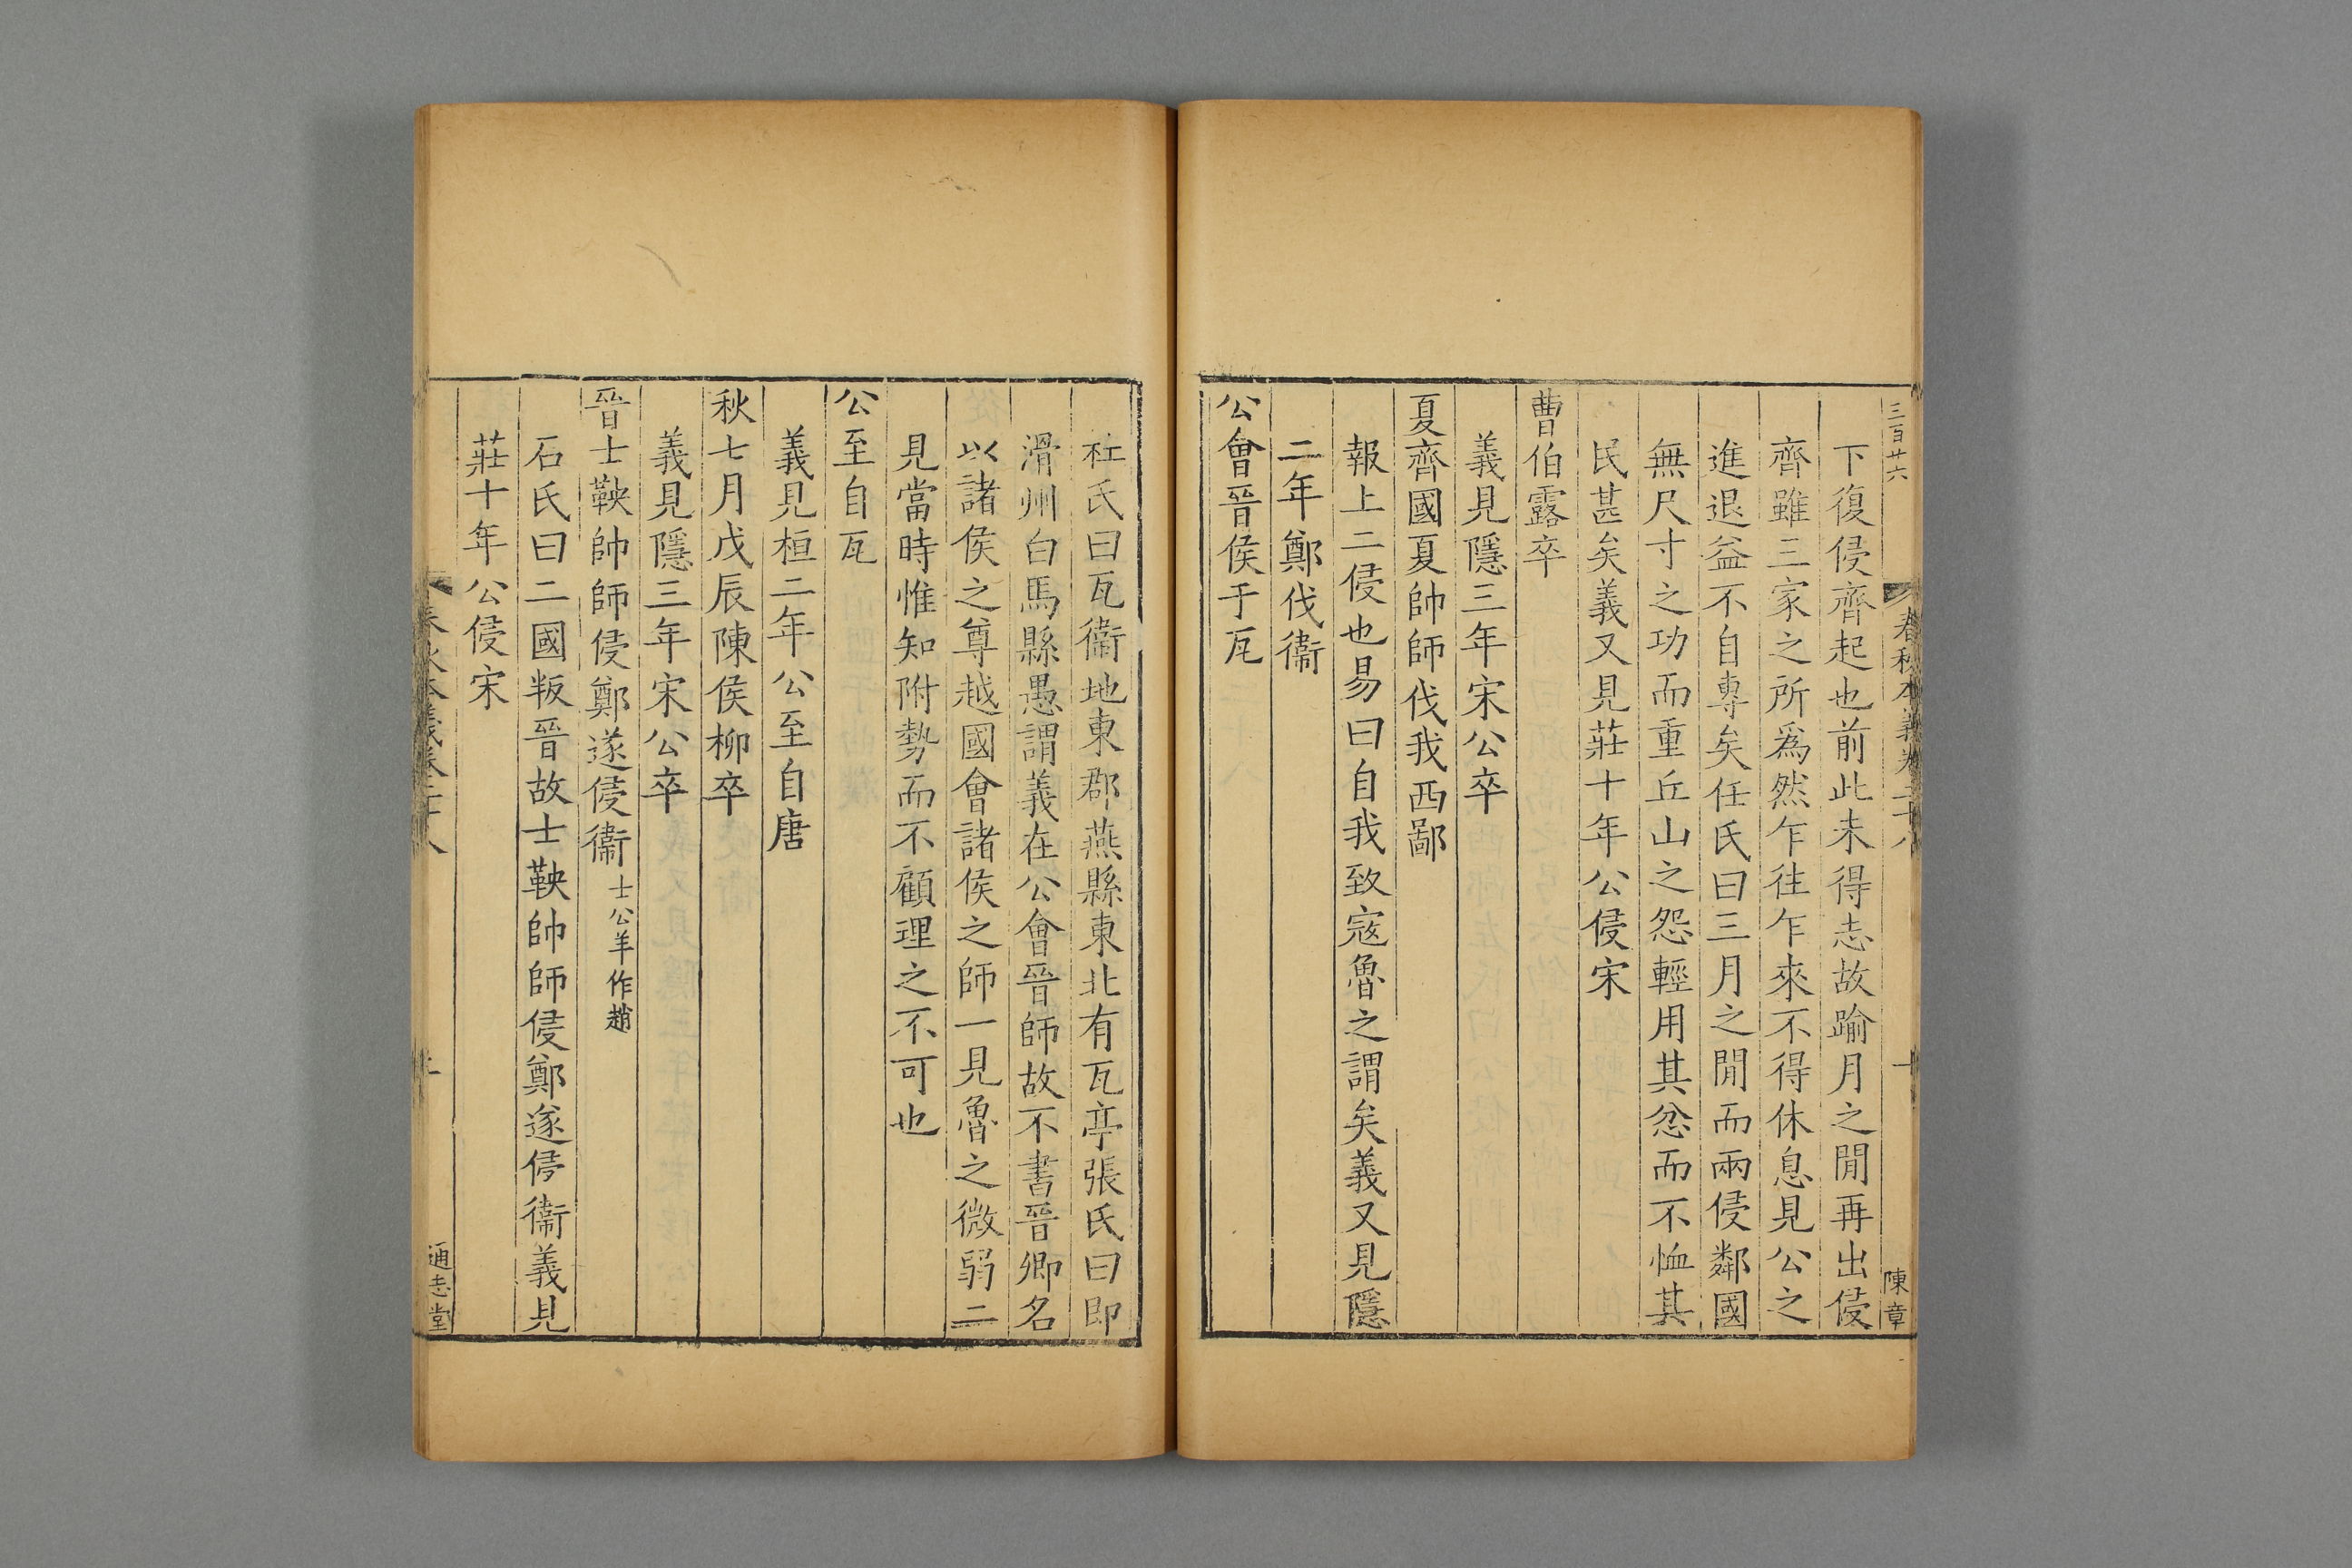 三百廿六
春秋本義卷二十八
十
陳章
下復侵齊起也前此未得志故踰月之閒再出侵
齊雖三家之所爲然乍往乍來不得休息見公之
進退益不自專矣任氏曰三月之閒而兩侵鄰國
無尺寸之功而重丘山之怨輕用其忿而不恤其
民甚矣義又見莊十年公侵宋
曹伯露卒
義見隱三年宋公卒
夏齊國夏帥師伐我西鄙
報上二侵也易曰自我致寇魯之謂矣義又見隱
二年鄭伐衞
公會晉侯于瓦
杜氏曰瓦衞地東郡燕縣東北有瓦亭張氏曰即
滑州白馬縣愚謂義在公會晉師故不書晉卿名
以諸侯之尊越國會諸侯之師一見魯之微弱二
見當時惟知附勢而不顧理之不可也
公至自瓦
義見桓二年公至自唐
秋七月戊辰陳侯柳卒
義見隱三年宋公卒
晉士鞅帥師侵鄭遂侵衞士公羊作趙
石氏曰二國叛晉故士鞅帥師侵鄭遂侵衞義見
莊十年公侵宋
春秋本義卷二十八
通志堂